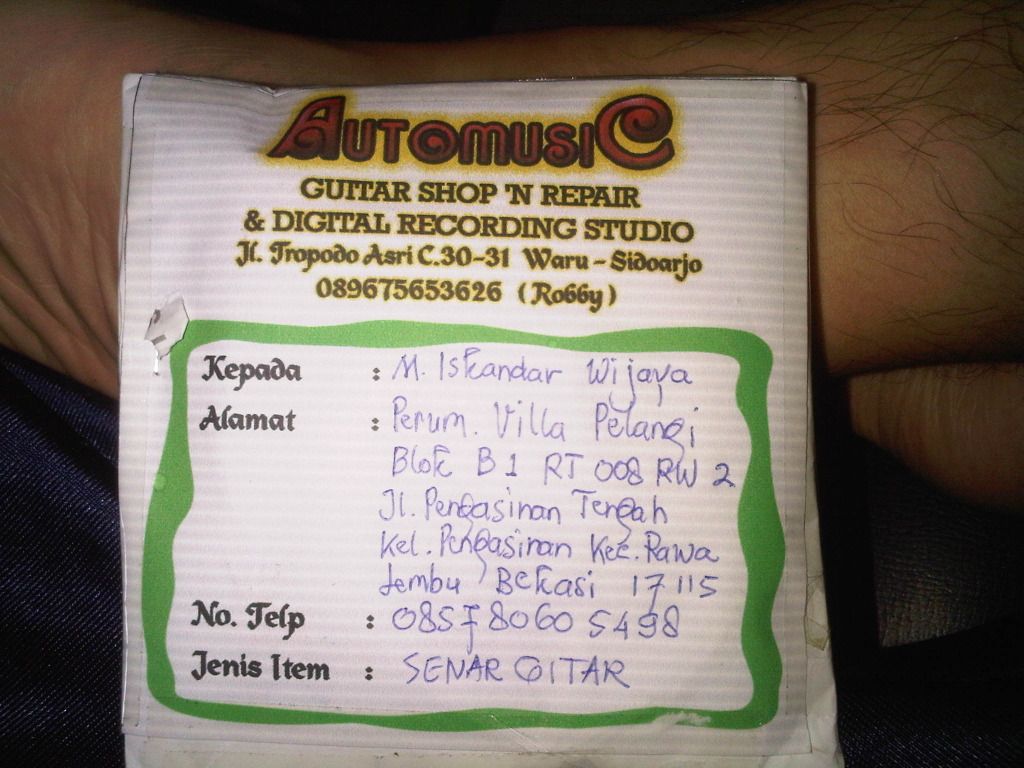 AUTOMUSIC
GUITAR SHOP 'N REPAIR
& DIGITAL RECORDING STUDIO
Jl. Tropodo Asri C.30-31 Waru - Sidoarjo
089675653626 (Robby)
Kepada : M. Iskandar Wijaya
Alamat : Perum. Villa Pelangi
Blok B1 RT 008 RW 2
Jl. Pengasinan Tengah
Kel. Pengasinan Kec. Rawa
lembu Bekasi 17115
No. Telp : 0857 8060 5498
Jenis Item : SENAR GITAR